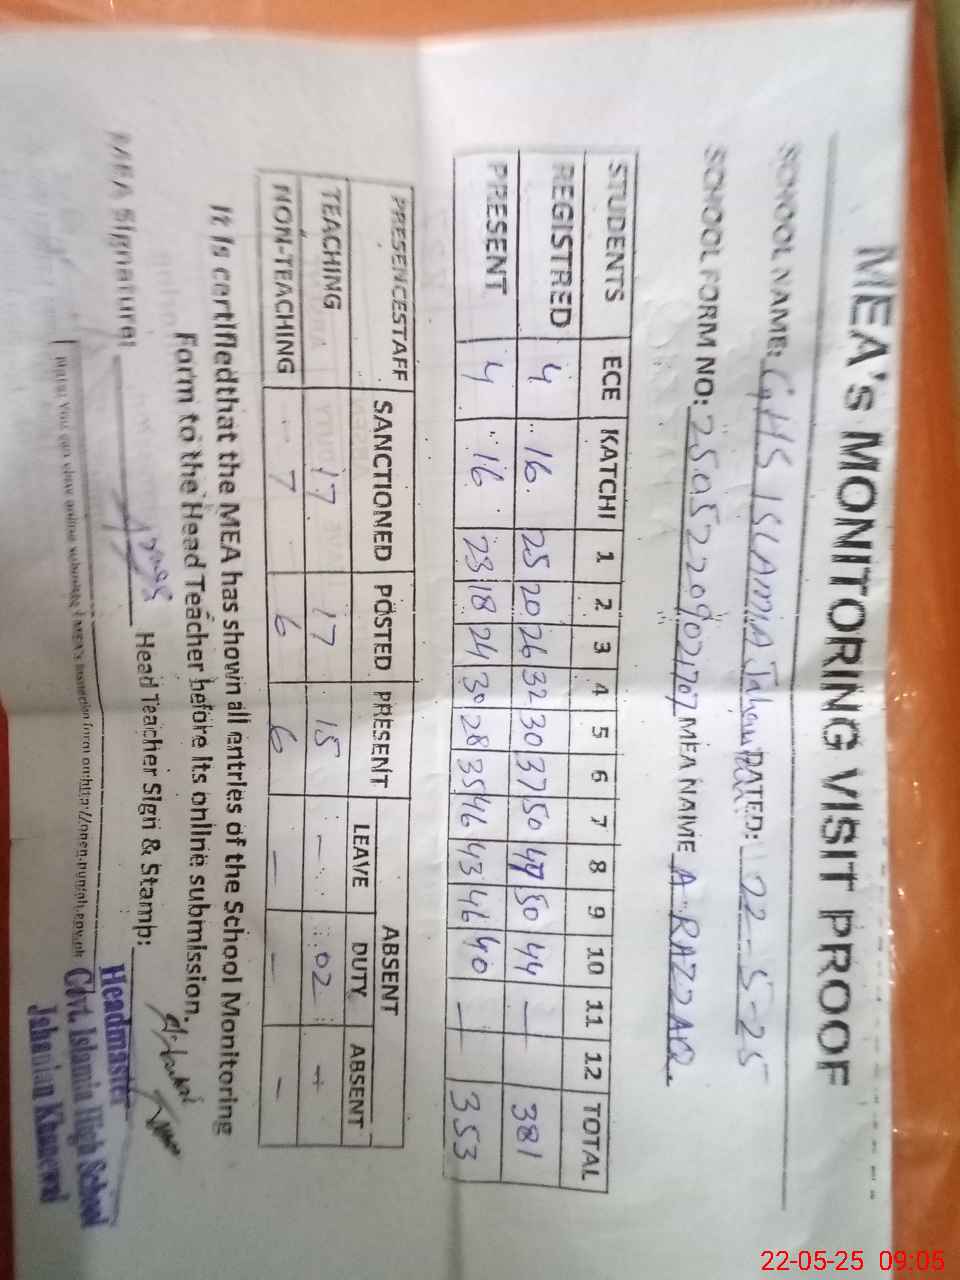 MEA's MONITORING VISIT PROOF
SCHOOL NAME: GHS ISLAMIA Jahanian DATED: 22-5-25
SCHOOL FORM NO: MEA NAME A-RAZZAQ
STUDENTS ECE KATCHI 1 2 3 4 5 6 7 8 9 10 11 12 TOTAL
REGISTRED 4 16 25 20 26 32 30 37 50 47 50 44 — 381
PRESENT 4 16 23 18 24 30 28 35 46 43 46 40 — 353
PRESENCESTAFF SANCTIONED POSTED PRESENT ABSENT
LEAVE DUTY ABSENT
TEACHING 17 17 15 — 02 +
NON-TEACHING 7 6 6 — — —
It is certifiedthat the MEA has shown all entries of the School Monitoring
Form to the Head Teacher before its online submission.
MEA Signature: Head Teacher Sign & Stamp:
Headmaster
Govt. Islamia High School
Jahanian Khanewal
22-05-25 09:05